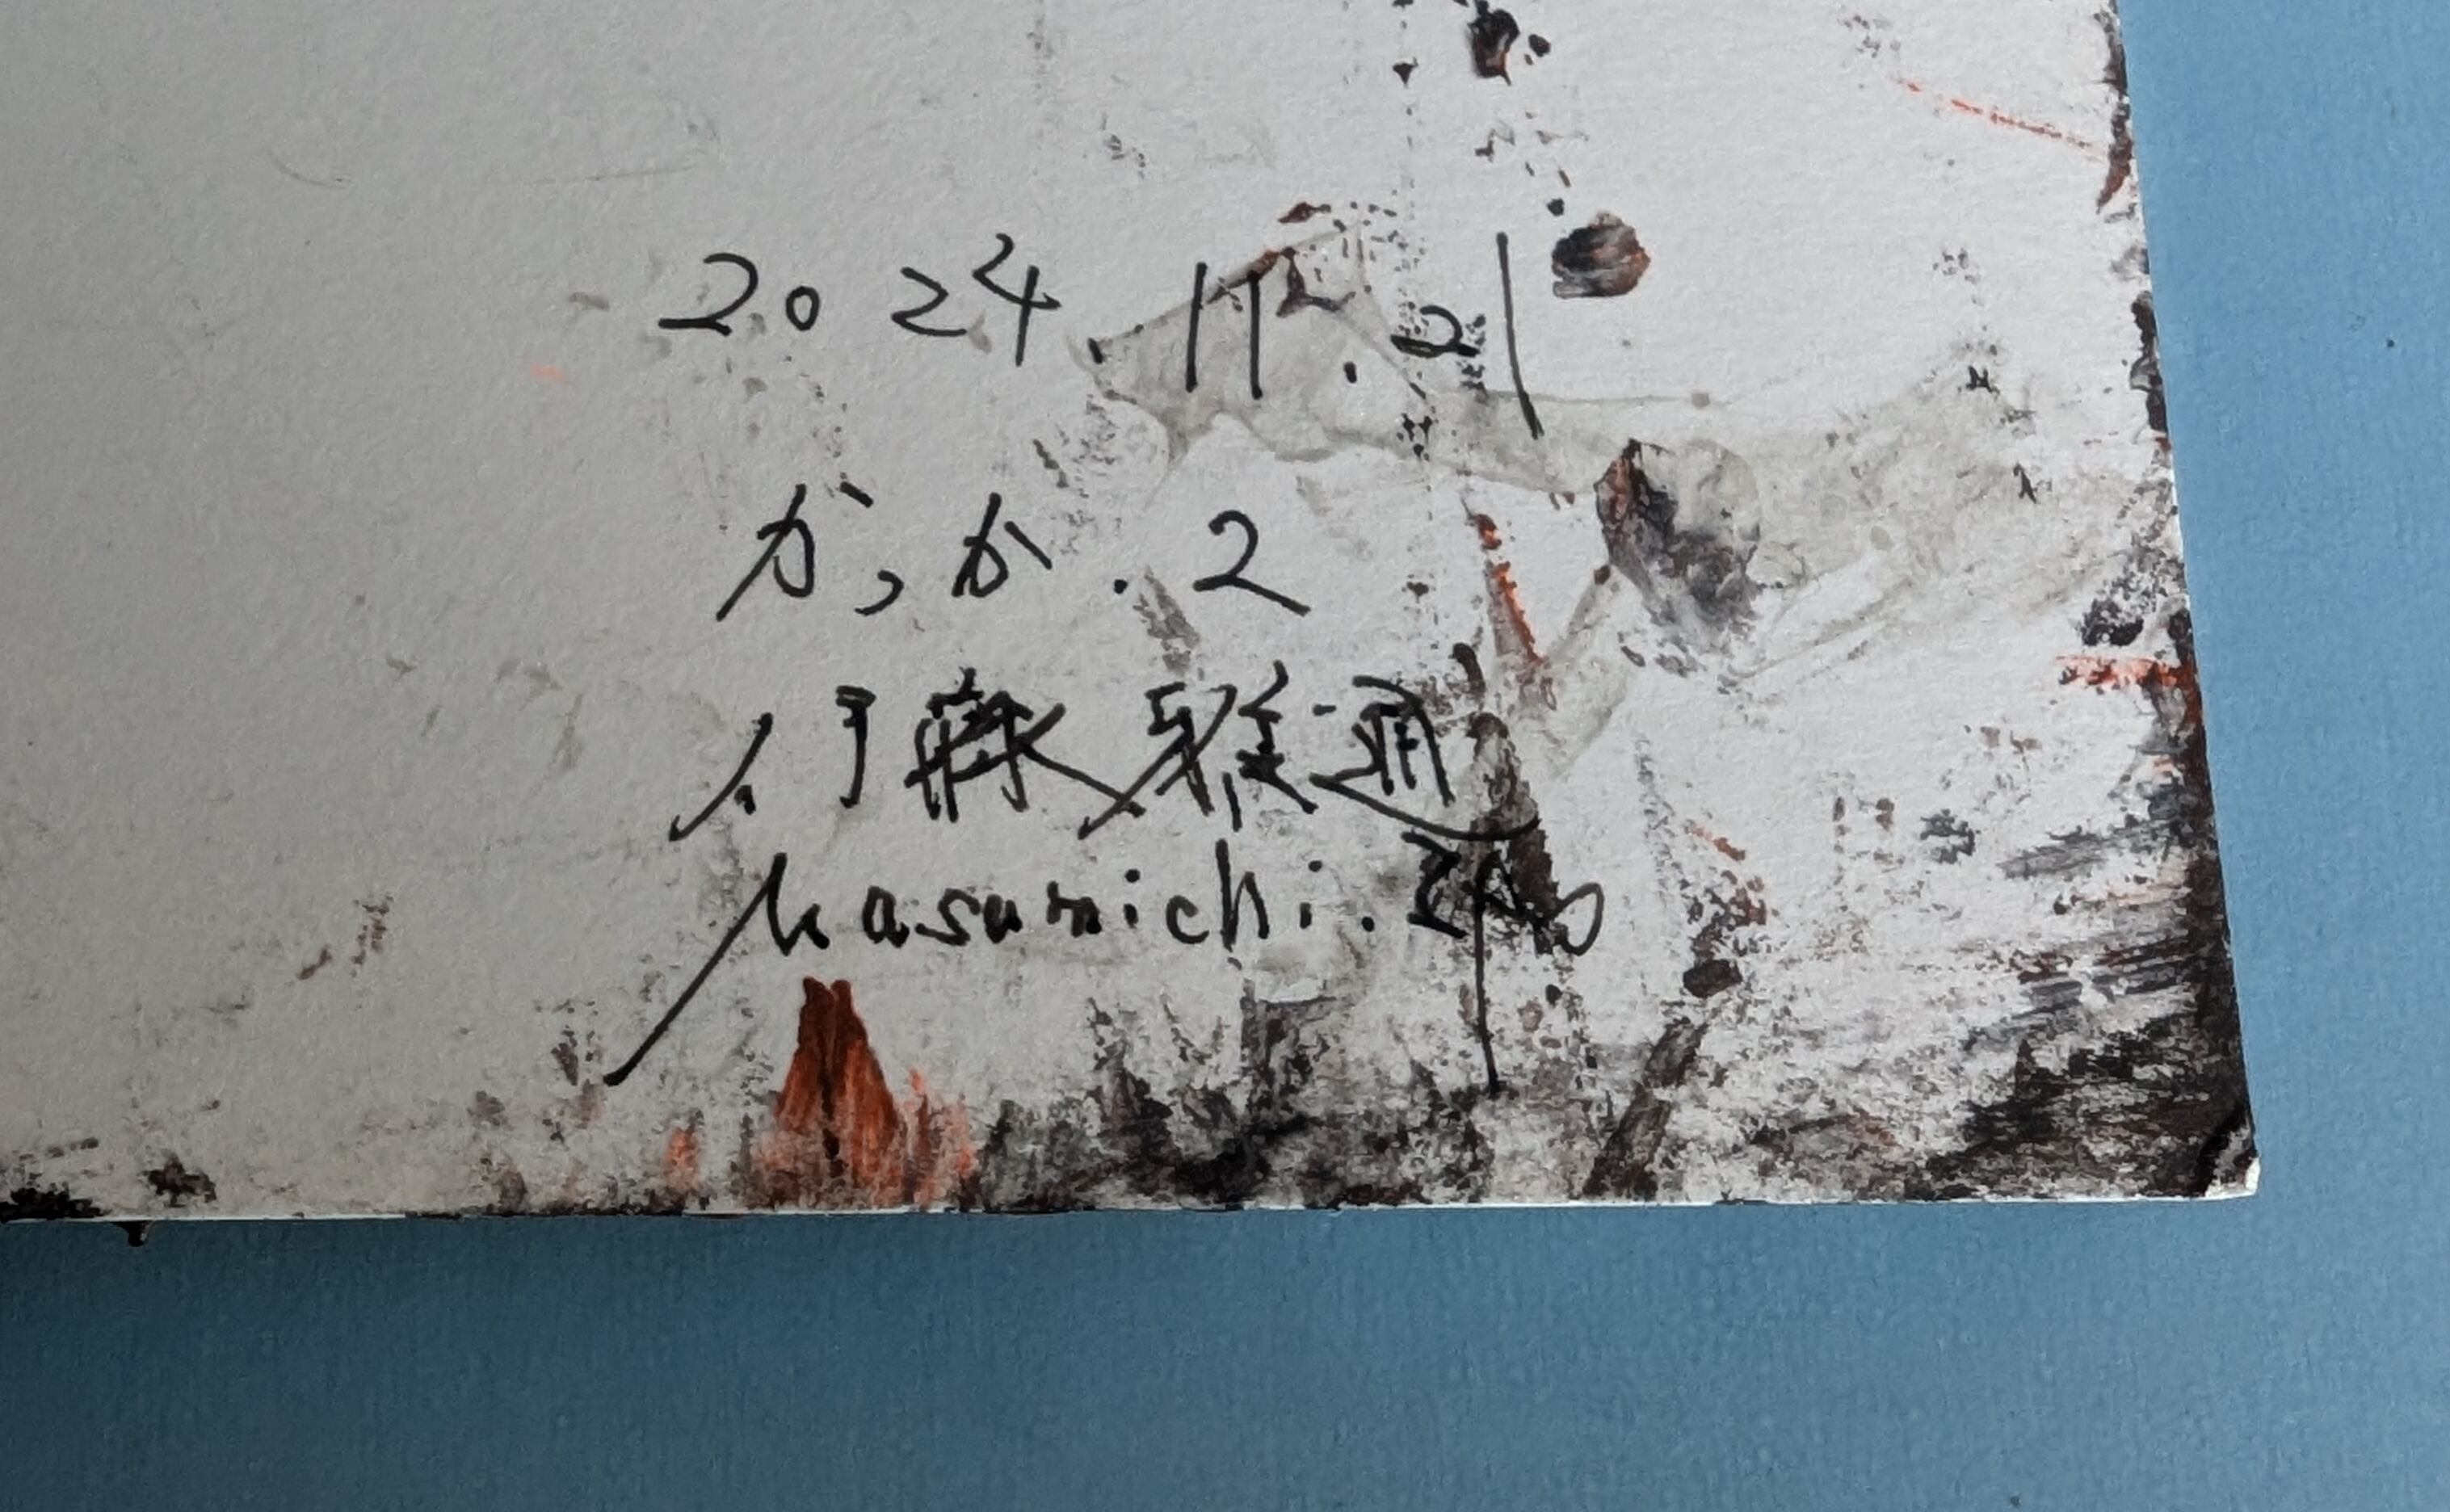 2024.11.21
かっか.2
伊藤雅通
Masamichi.Ito